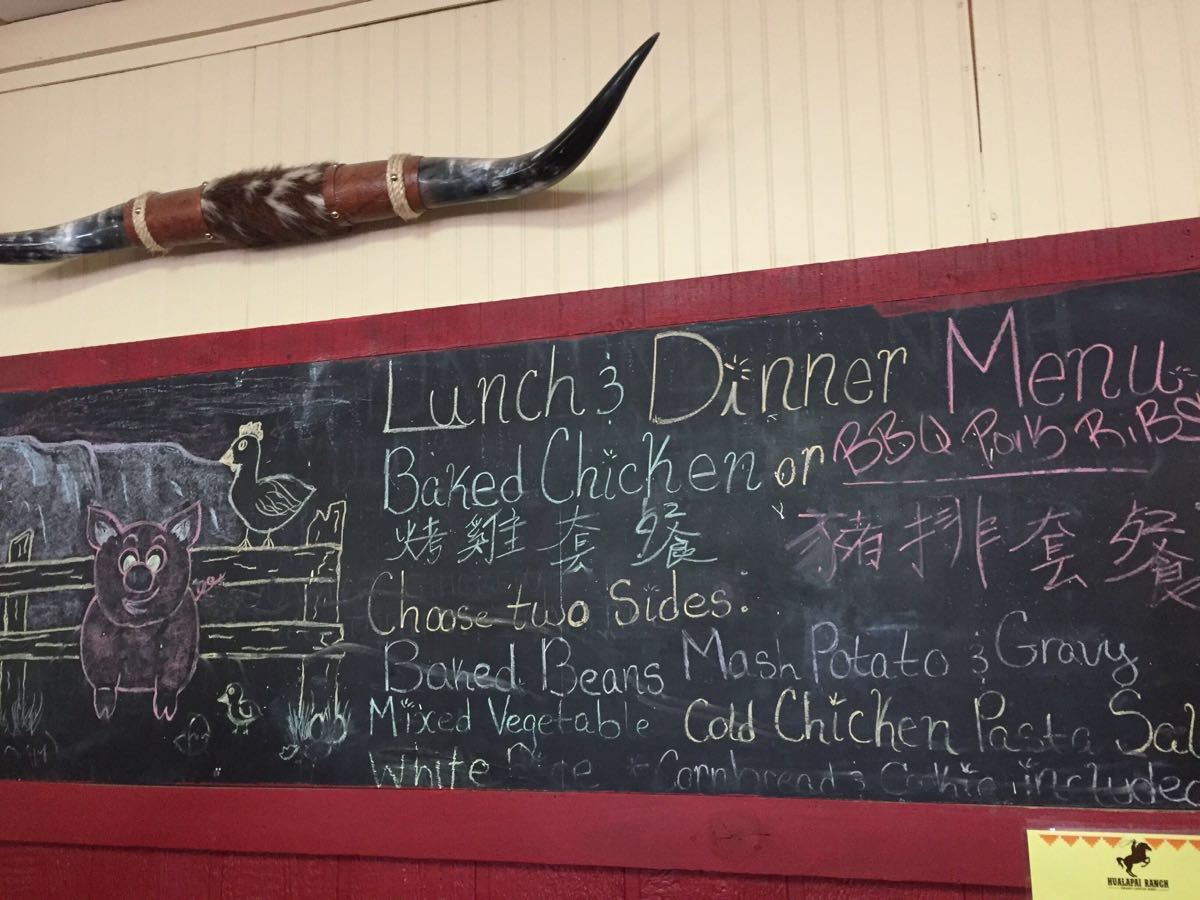 Lunch & Dinner Menu
Baked Chicken or BBQ Pork RiBS
烤雞套餐 豬排套餐
Choose two Sides:
Baked Beans Mash Potato & Gravy
Mixed Vegetable Cold Chicken Pasta Sal
White Rice * Cornbread & Cookie included
HUALAPAI RANCH